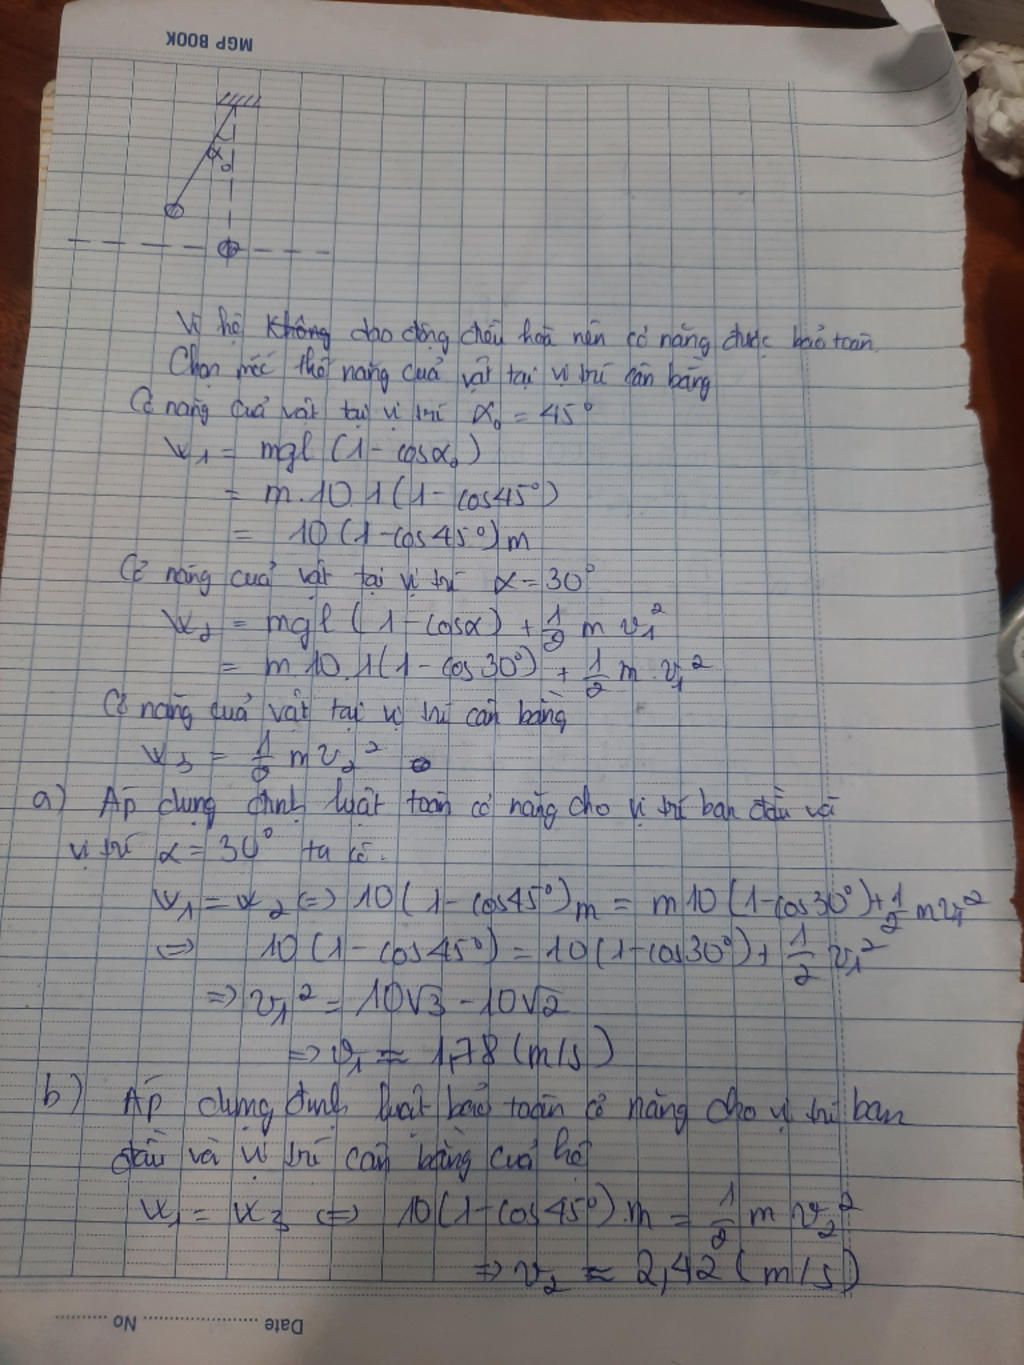 MGP BOOK
α₀
Vì hệ không dao động điều hoà nên cơ năng được bảo toàn.
Chọn mốc thế năng cuả vật tại vị trí cân bằng
Cơ năng cuả vật tại vị trí α₀ = 45°
W₁ = mgl (1 - cosα₀)
= m.10.1(1 - cos45°)
= 10(1-cos45°)m
Cơ năng cuả vật tại vị trí α = 30°
W₂ = mgl (1 - cosα) + 1/2 m v₁²
= m.10.1(1 - cos30°) + 1/2 m.v₁²
Cơ năng cuả vật tại vị trí cân bằng
W₃ = 1/2 m v₂²
a) Áp dụng định luật toàn cơ năng cho vị trí ban đầu và
vị trí α = 30° ta có.
W₁ = W₂ <=> 10(1-cos45°)m = m10(1-cos30°)+1/2 mv₁²
<=> 10(1-cos45°) = 10(1-cos30°)+ 1/2 v₁²
=> v₁² = 10√3 - 10√2
=> v₁ ≈ 1,78 (m/s)
b) Áp dụng định luật bảo toàn cơ năng cho vị trí ban
đầu và vị trí cân bằng cuả hệ
W₁ = W₃ <=> 10(1-cos45°).m = 1/2 m v₂²
=> v₂ ≈ 2,42 (m/s)
Date ........................ No ...........